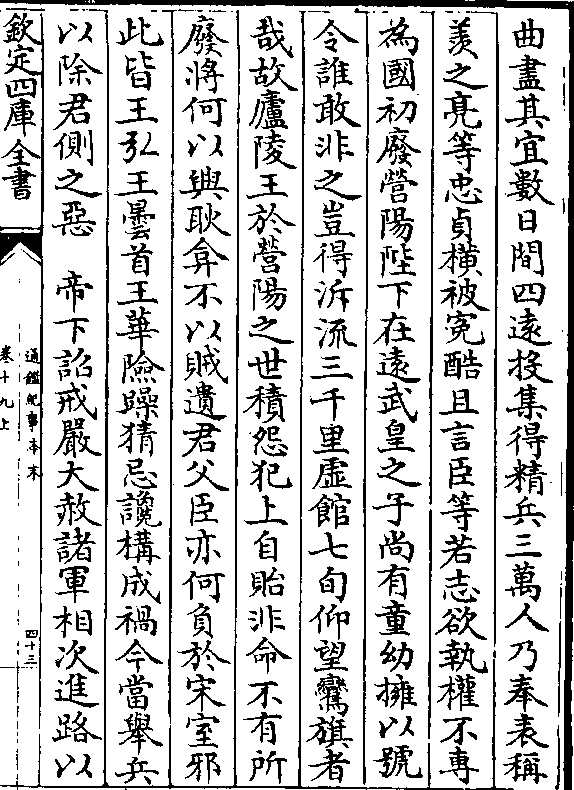 曲盡其宜數日間四遠投集得精兵三萬人乃奉表稱
羨之亮等忠貞橫被寃酷且言臣等若志欲執權不專
為國初廢營陽陛下在遠武皇之子尚有童幼擁以號
令誰敢非之豈得泝流三千里虛館七旬仰望鸞旗者
哉故廬陵王於營陽之世積怨犯上自貽非命不有所
廢將何以興耿弇不以賊遺君父臣亦何負於宋室邪
此皆王弘王曇首王華險躁猜忌讒構成禍今當舉兵
以除君側之惡　帝下詔戒嚴大赦諸軍相次進路以
欽定四庫全書
通鑑紀事本末
卷十九上
四十三